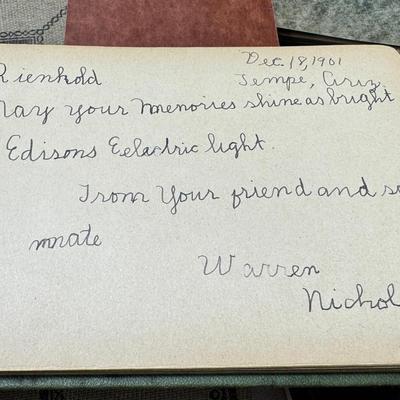 Dec. 18, 1901
Rienhold
Tempe, Ariz
May your memories shine as bright
Edisons Eelactric light.
From your friend and sc
mnate
Warren
Nichol